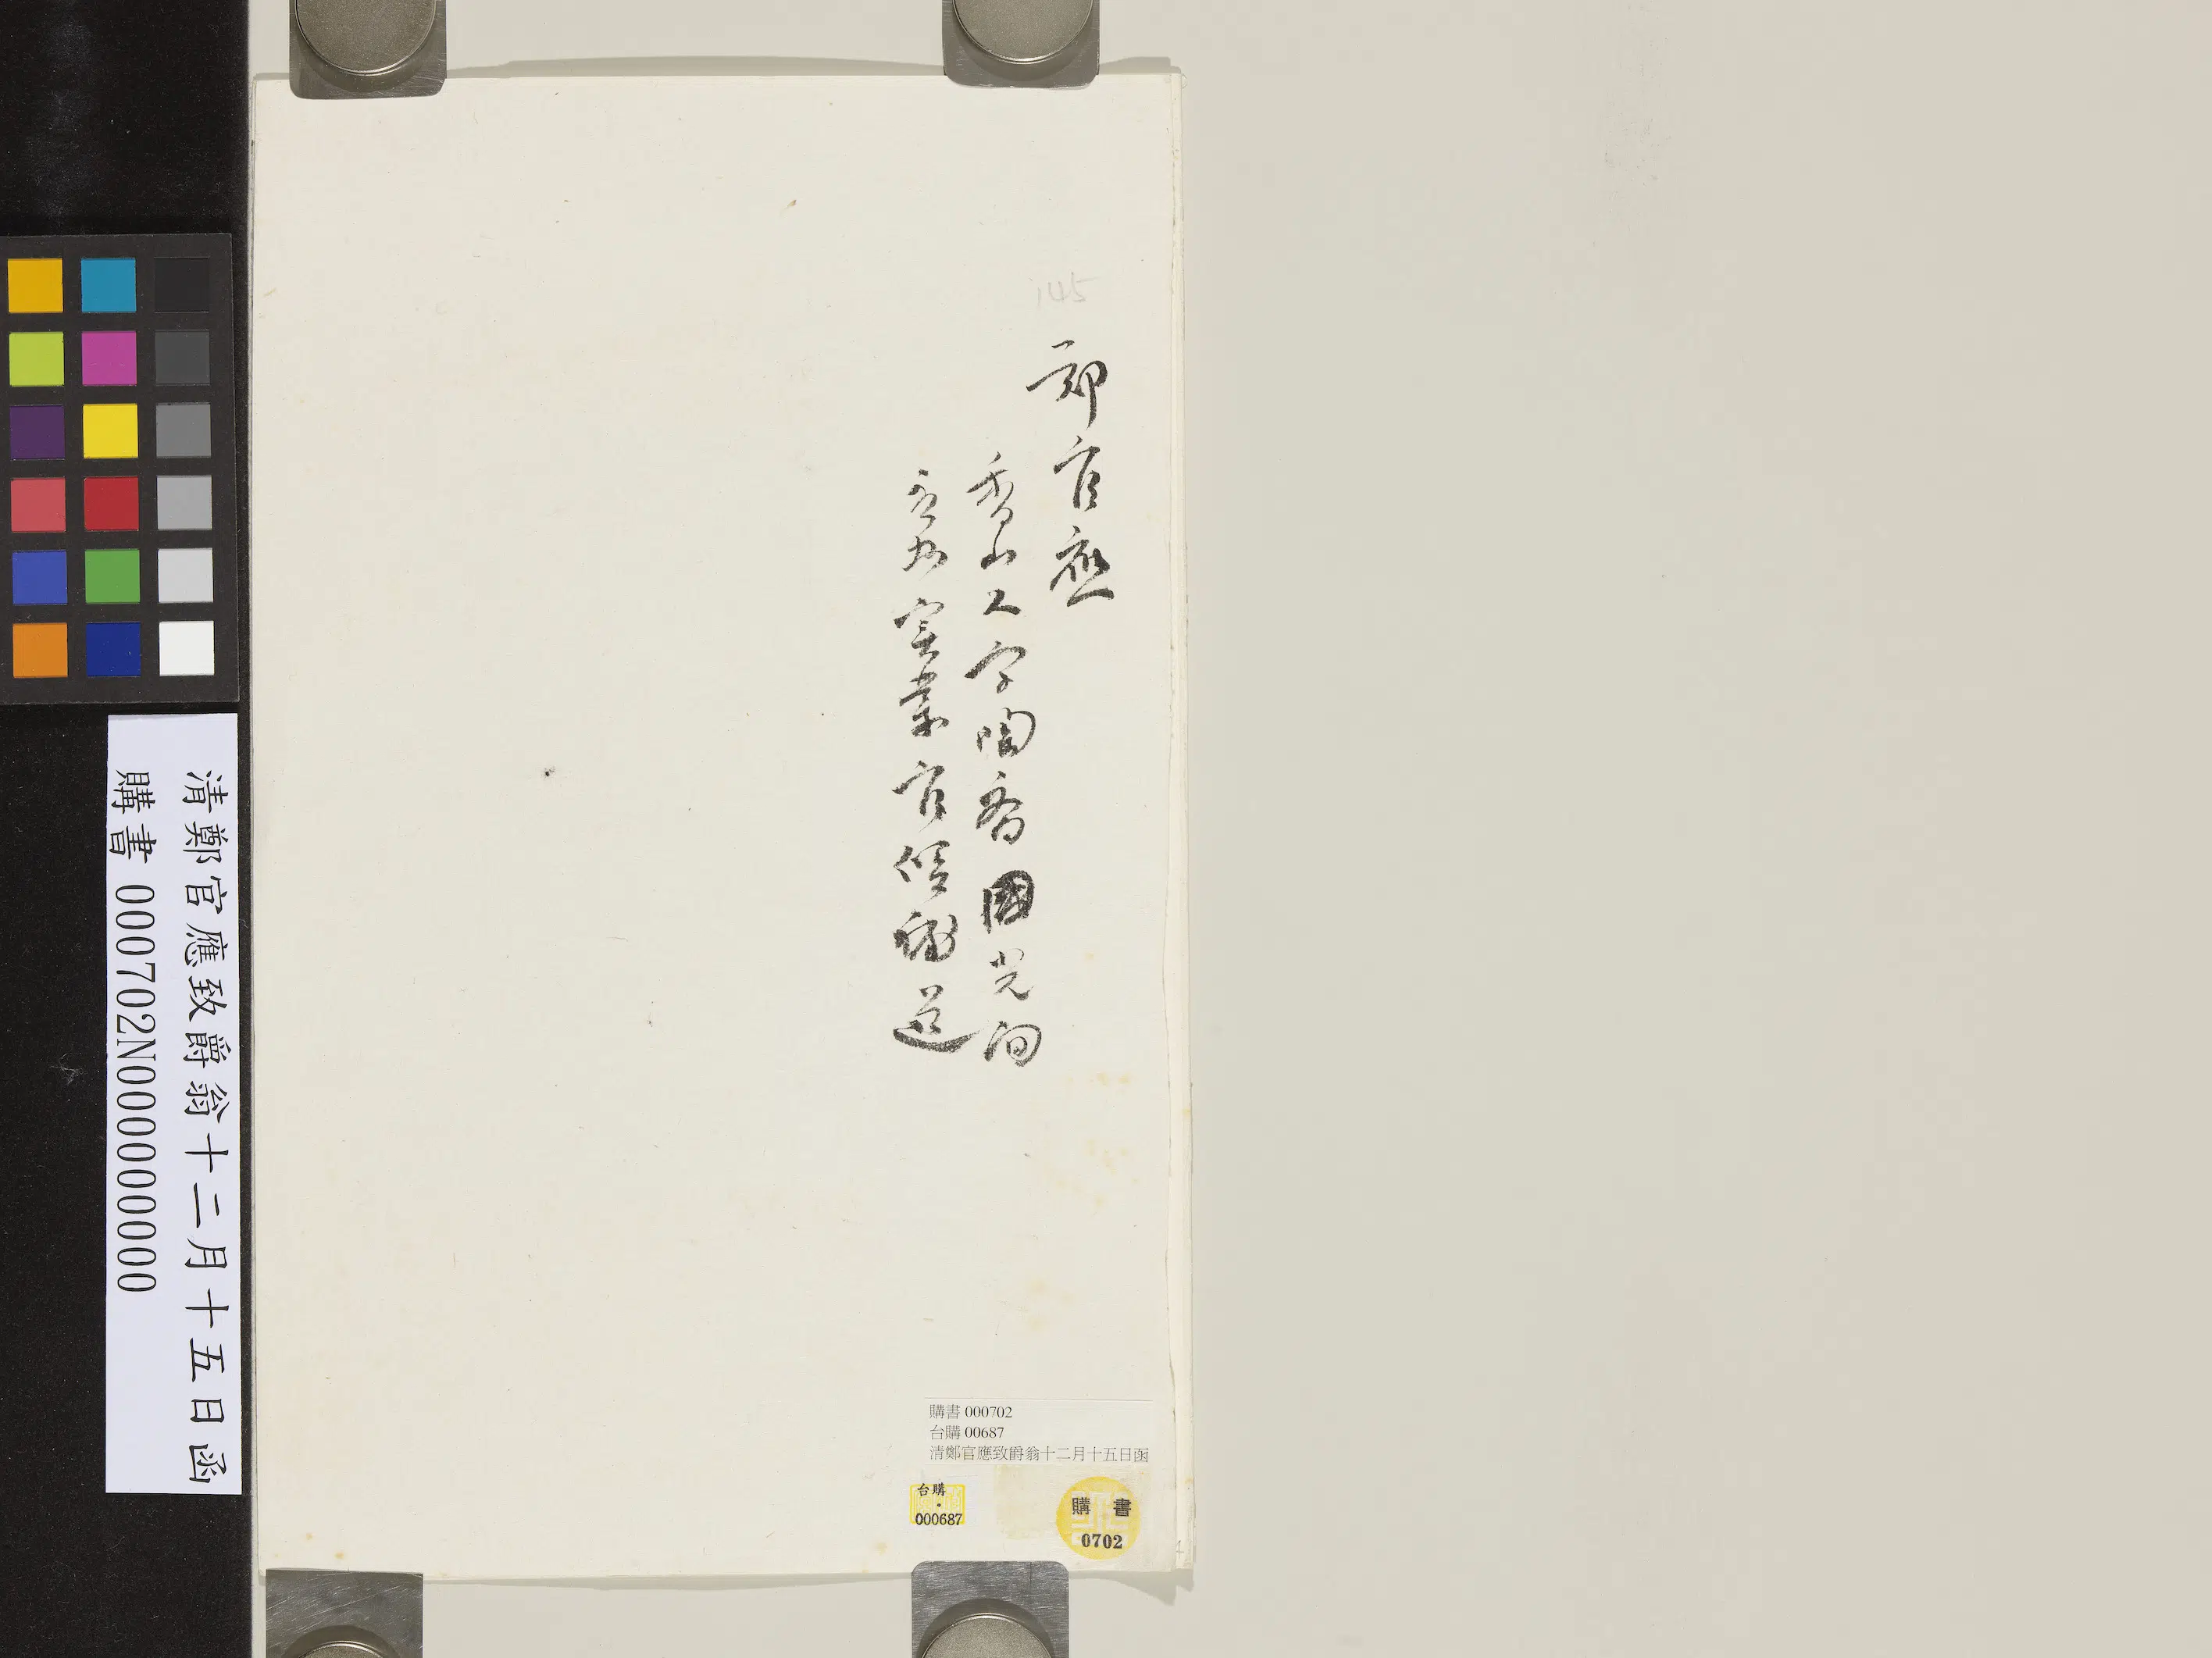 145
鄭官應
香山人字陶齋同光间
办實業官候補道
清鄭官應致爵翁十二月十五日函
購書 000702N000000000
購書 000702
台購 00687
清鄭官應致爵翁十二月十五日函
台購
000687
購書
0702